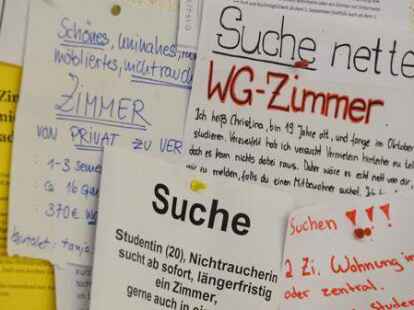 Schönes, uninahes,
möbliertes, nichtrauch
ZIMMER
VON PRIVAT ZU VER
1-3 Seme
ca 16 Qm
370€
Kontakt: tanja
Suche nette
WG-Zimmer
Ich heiß Christina, bin 19 Jahre alt, und fange im Oktober
studieren. Verzweifelt hab ich versucht Vermietern hinterher zu tel
doch es kam nichts dabei raus. Daher wäre es echt nett von dir
zu melden, falls du einen Mitbewohner suchst.
Suche
Studentin (20), Nichtraucherin
sucht ab sofort, längerfristig
ein Zimmer,
gerne auch in ei
Suchen !!!
2 Zi. Wohnung im
oder zentral.